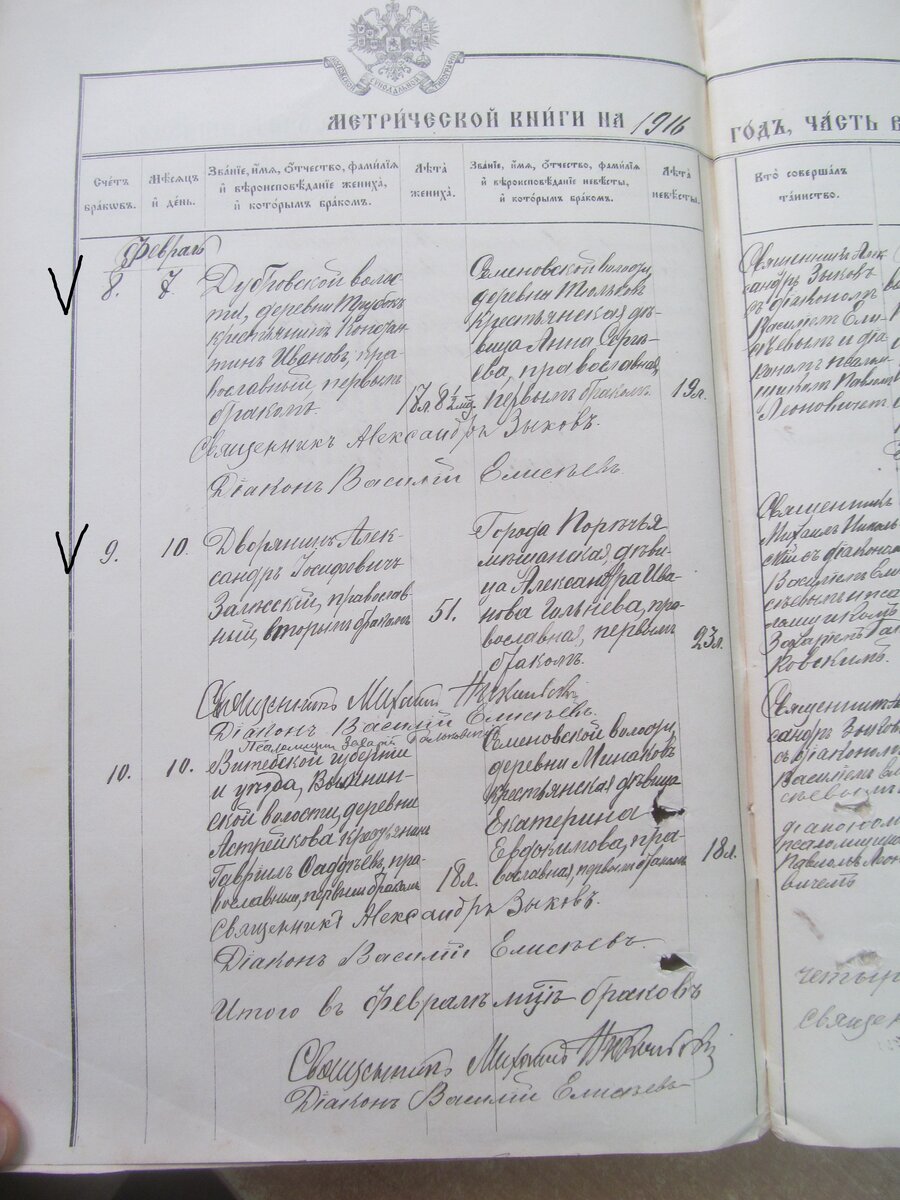 МЕТРИ́ЧЕСКОЙ КНИ́ГИ НА 1916 ГО́ДЪ, ЧА́СТЬ В
Сче́тъ бра́ковъ.
Мѣ́сяцъ и́ де́нь.
Зва́нїе, и́мя, о́тчество, фами́лїя и́ вѣроисповѣ́данїе жениха́, и́ кото́рымъ бра́комъ.
Лѣ́та жениха́.
Зва́нїе, и́мя, о́тчество, фами́лїя и́ вѣроисповѣ́данїе невѣ́сты, и́ кото́рымъ бра́комъ.
Лѣ́та невѣ́сты.
Кто̀ соверша́лъ та́инство.
Февраль
8.
7
Дубровской волос-
ти, деревни
крестьянинъ Констан-
тинъ Ивановъ, пра-
вославный, первымъ
бракомъ.
17л. 8½ мѣс.
Семеновской волости,
деревни Тюльковъ
крестьянская дѣ-
вица Анна Серге-
ева, православная,
первымъ бракомъ.
19л.
Священникъ Алек-
сандръ Зыковъ
съ діакономъ
Василіемъ Ели-
сѣевымъ и діа-
кономъ псалом-
щикомъ Павломъ
Леоновичемъ
Священникъ Александръ Зыковъ.
Діаконъ Василій Елисѣевъ.
9.
10.
Дворянинъ Алек-
сандръ Іосифовичъ
Залюсскій, православ-
ный, вторымъ бракомъ
51.
Города Порѣчья
мѣщанская дѣви-
ца Александра Ива-
нова Гольнева, пра-
вославная, первымъ
бракомъ.
23л.
Священникъ
Михаилъ Николь-
скій съ діакономъ
Василіемъ Ели-
сѣевымъ и пса-
ломщикомъ
Захаріемъ Галь-
ковскимъ.
Священникъ Михаилъ Никольскій
Діаконъ Василій Елисѣевъ.
Псаломщикъ Захарій Гальковскій
10.
10.
Витебской губерніи
и уѣзда,
ской волости, деревни
Астрейкова крестьянинъ
Гавріилъ пра-
вославный, первымъ бракомъ
18л.
Семеновской волости,
деревни Минаковъ
крестьянская дѣвица
Екатерина
Евдокимова, пра-
вославная, первымъ бракомъ
18л.
Священникъ Алек-
сандръ Зыковъ
съ діакономъ
Василіемъ Ели-
сѣевымъ
діакономъ
псаломщикомъ
Павломъ Леоно-
вичемъ
Священникъ Александръ Зыковъ.
Діаконъ Василій Елисѣевъ.
Итого въ Февралѣ мцѣ браковъ
четыр
священ
Священникъ Михаилъ Никольскій
Діаконъ Василій Елисѣевъ